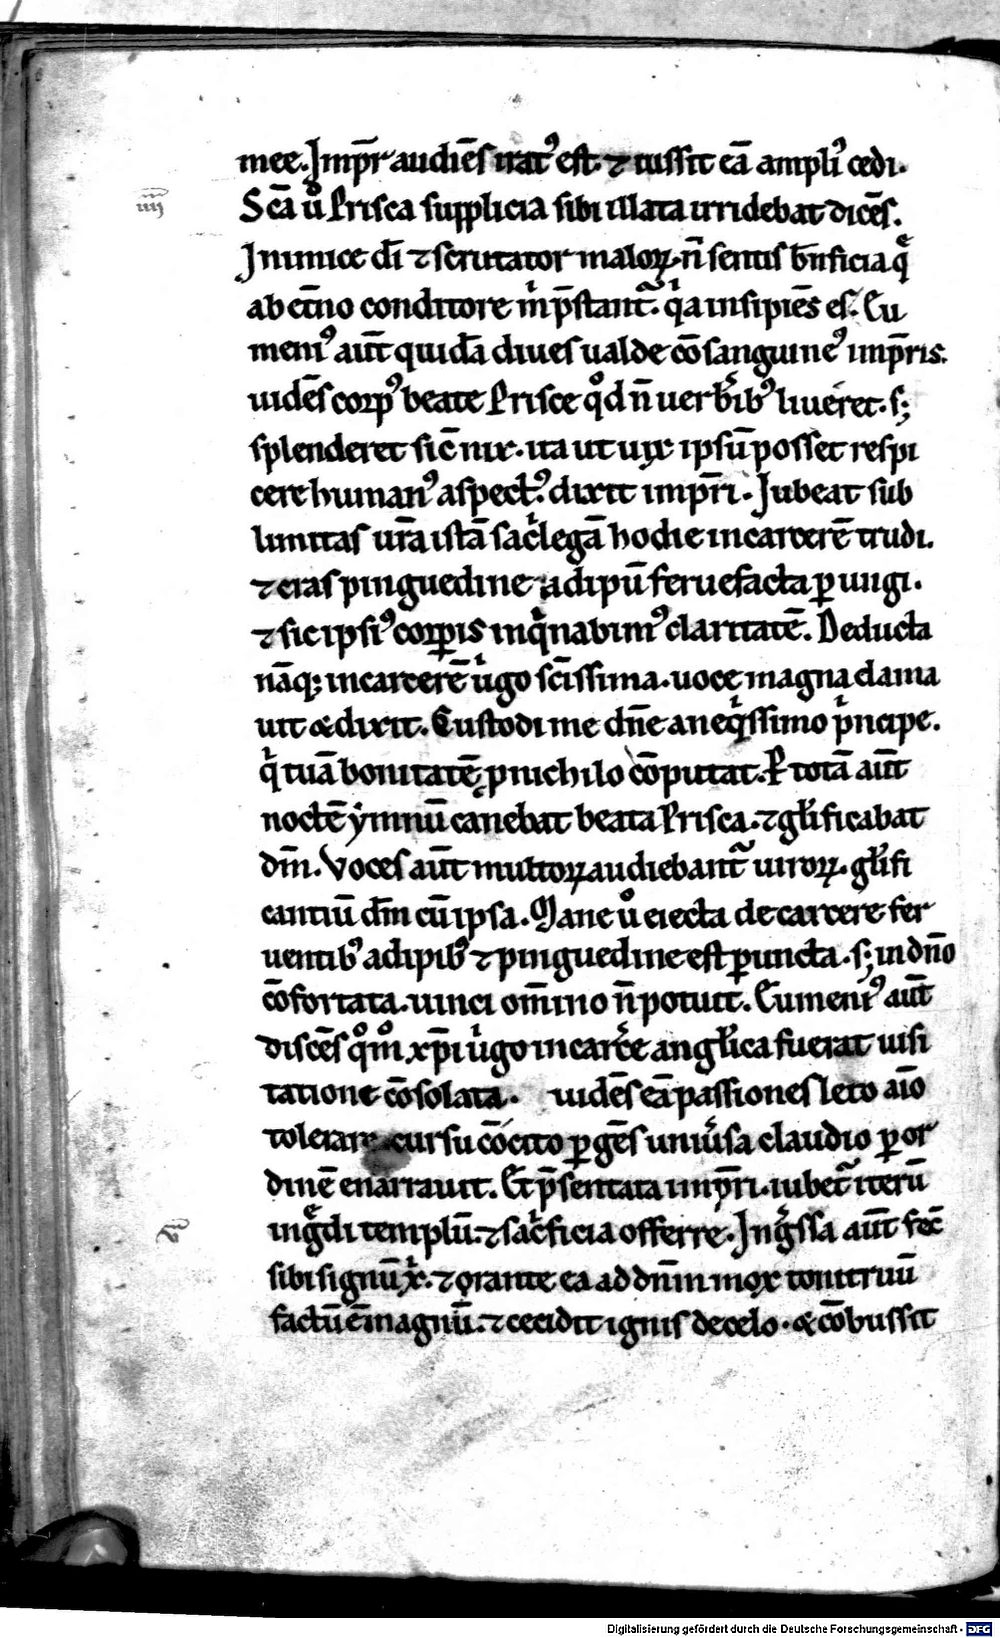 mee. Imp̄r audiēs irat᷒ est. ⁊ iussit eā ampli᷒ cedi.
iiii
Scā ů Prisca supplicia sibi illata irridebat dicēs.
Inimice dī ⁊ scrutator maloꝝ. n̄ sentis bn̄ficia q̄
ab et̄no conditore m̍ p̄stant᷑. q̍a insipiēs es. Cu
meni᷒ aūt quidā diues ualde cōsanguine᷒ imp̄ris.
uidēs corp᷒ beate Prisce qͦd n̄ uerb̍ib᷒ liueret. s;
splenderet sic̄ nix. ita ut uix ipsū posset respi
cere human᷒ aspect᷒. dixit imp̄ri. Jubeat sub
limitas ur̄a istā sac̍legā hodie in carcerē trudi.
⁊ cras pinguedine adipū feruefacta ꝑungi.
⁊ sic ipsi᷒ corꝑis inq̍nabim᷒ claritatē. Deducta
nāq; in carcerē u̍go scīssima. uoce magna clama
uit & dixit. Custodi me dn̄e a neq̍ssimo p̍ncipe.
q̍ tuā bonitatē p nichilo cōputat. P totā aūt
noctē ymnū canebat beata Prisca. ⁊ gl̄ificabat
dm̄. Voces aūt multoꝝ audiebant᷑ uiroꝝ. gl̄ifi
cantiū dm̄ cū ipsa. Mane ů eiecta de carcere fer
uentib᷒ adipib᷒ ⁊ pinguedine est ꝑuncta. s; in dn̄o
cōfortata. uinci om̄ino n̄ potuit. Cumeni᷒ aūt
discēs qͦm xp̄i u̍go in carc̄e angl̄ica fuerat uisi
tatione cōsolata. uidēs eā passiones leto aīo
tolerare cursu cōcito ꝑgēs uniu̍sa claudio ꝑ or
dinē enarrauit. Et p̄sentata imp̄ri. iubet᷑ iterū
v
ing̍di templū. ⁊ sac̍ficia offerre. Ing̍ssa aūt fec̄
sibi signū x̍. ⁊ orante ea ad dn̄m mox tonitruū
factū ē magnū. ⁊ cecidit ignis de celo. & cōbussit
Digitalisierung gefördert durch die Deutsche Forschungsgemeinschaft - DFG